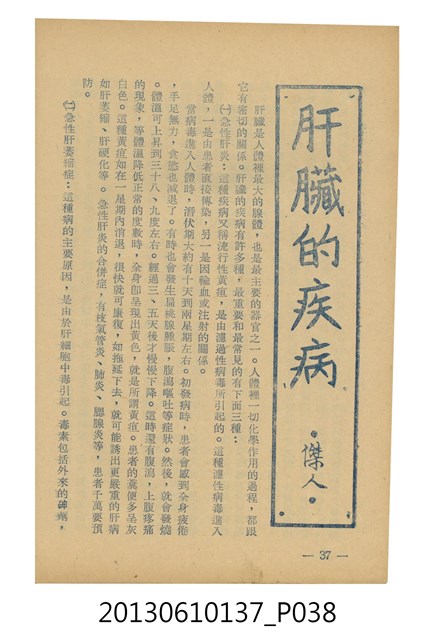 肝臟的疾病
·傑人·
肝臟是人體裡最大的腺體，也是最主要的器官之一。人體裡一切化學作用的過程，都跟
它有密切的關係。肝臟的疾病有許多種，最重要和最常見的有下面三種：
㈠急性肝炎：這種疾病又稱流行性黃疸，是由濾過性病毒所引起的。這種濾性病毒進入
人體，一是由患者直接傳染，另一是因輸血或注射的關係。
當病毒進入人體時，潛伏期大約有十天到兩星期左右。初發病時，患者會感到全身疲倦
，手足無力，食慾也減退了。有時也會發生扁桃腺腫脹，腹瀉嘔吐等症狀。然後，就會發燒
。體溫可上昇到三十八、九度左右。經過三、五天後才慢慢下降。這時還有腹瀉，上腹疼痛
的現象，等體溫降低正常的度數時，全身即呈現出黃色，就是所謂黃疸。患者的糞便多呈灰
白色。這種黃疸如在一星期內消退，很快就可康復，如拖延下去，就可能誘出更嚴重的肝病
如肝萎縮、肝硬化等。急性肝炎的合併症，有枝氣管炎、肺炎、腮腺炎等，患者千萬要預
防。
㈡急性肝萎縮症：這種病的主要原因，是由於肝細胞中毒引起。毒素包括外來的砷劑，
— 37 —
20130610137_P038